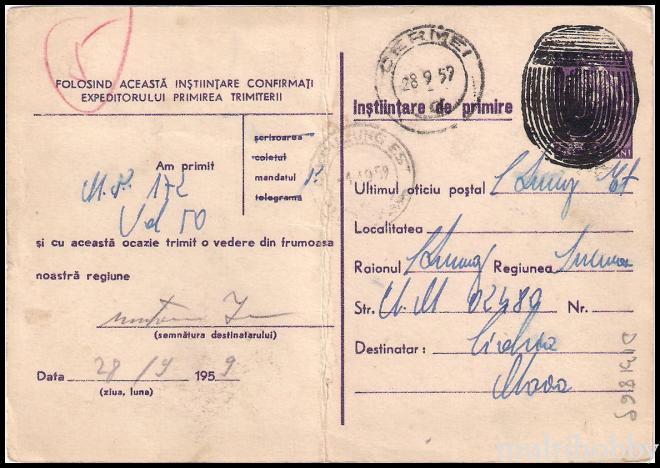 FOLOSIND ACEASTĂ INȘTIINȚARE CONFIRMAȚI
EXPEDITORULUI PRIMIREA TRIMITERII
Am primit
scrisoarea
coletul
mandatul
telegrama
172
50
și cu această ocazie trimit o vedere din frumoasa
noastră regiune
(semnătura destinatarului)
Data 28/9 1959
(ziua, luna)
CERMEI
28 9 59
Inștiințare de primire
Ultimul oficiu postal C Lung Est
Localitatea
Raionul C Lung Regiunea Suceava
Str. U.M 02489 Nr.
Destinatar:
multihobby